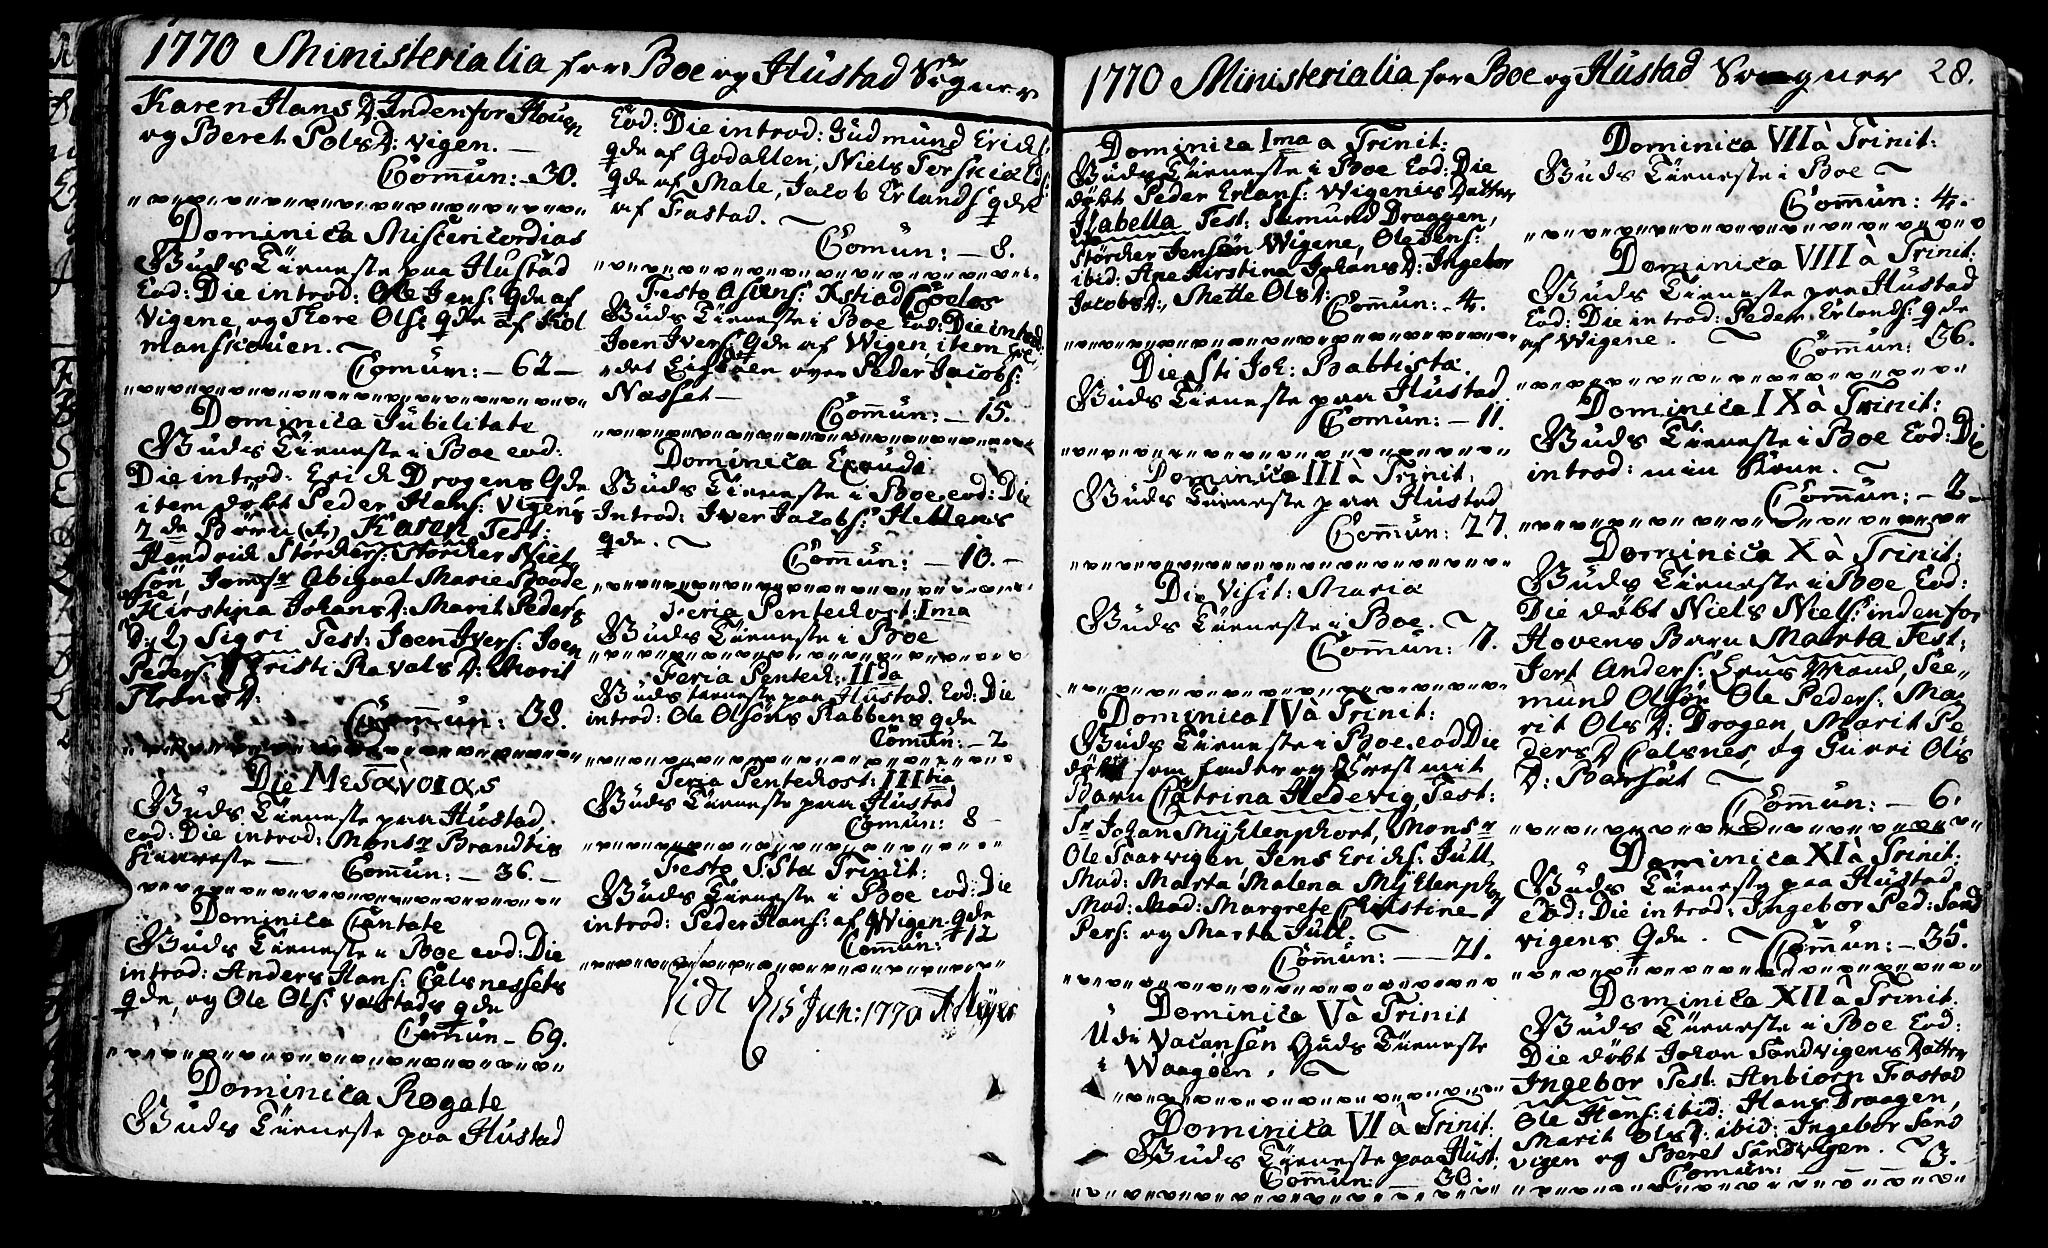 1770 Ministerialia for Boe og Hustad Sogner
Karen Hans D: Indenfor Hoven
og Beret Pols D: Vigen. —
Com̄un: 30.
Dominica Misericordias
Guds Tieneste paa Hustad
Eod: Die introd: Ole Jens: qde af
Vigene, og Tore Ols: qde af Kol
manskouen. ~
Comun: — 62 —
Dominica Jubilitate
Guds Tieneste i Boe eod:
Die introd: Erich Drogens qde
item døbt Peder Hans: Vigens
2de Børn (1) Karen Test:
Hendrich Størkers: Størker Niel
søn, Jomfr Abiguel Marie Baade
Kirstina Johans D: Marit Peders
D: 2) Sigri Test: Joen Ivers: Joen
Peders: Kristi Ravals D: Marit
Hans D:
Com̄un: 38.
Die Μεταvοιας
Guds Tieneste paa Hustad.
eod: Die introd: Monsr Brandtis
Kiæreste — Com̄un: — 36. —
Dominica Cantate
Guds Tieneste i Boe eod: Die
introd: Anders Hans: Celsnessets
qde, og Ole Ols: Valstads qde
Comun — 69.
Dominica Rogate
Guds Tieneste paa Hustad
Eod: Die introd: Gudmund Erichs:
qde af Godahlen, Niels Torskields:
qde af Male, Jacob Erlands: qde
af Fastad. ~
Comun: — 8.
Festo Asens: Xsti ad Coelos
Guds Tieneste i Boe Eod: Die introd:
Joen Ivers: qde af Wigen, item
Peder Jacobs:
Næsset —
Com̄un: — 15.
Dominica Exaudi
Guds Tieneste i Boe, eod: Die
Introd: Iver Jacobs: Hellens
qde. ~
Com̄un: — 10. —
Feria Pentecost: Ima
Guds Tieneste i Boe
Feria Pentec: IIda
Guds tieneste paa Hustad. Eod: Die
introd: Ole Olsöns Rabbens qde
Com̄un: — 2
Feria Pentecost: IIItia
Guds Tieneste paa Hustad
Comun: 8 —
Festo S:Sta Trinit:
Guds Tieneste i Boe eod: Die
introd: Peder Hans: af Wigen qde
Com̄un: 12
Vidi d 15 Jun: 1770
1770 Ministerialia for Boe og Hustad Sogner 28.
Dominica Ima a Trinit:
Guds Tieneste i Boe Eod: Die
døbt Peder Erlans: Wigenis Datter
Isabella Test: Samund Draagen,
Størcker Jensøn Wigene, Ole Jens:
ibid: Ane Kirstina Johans D: Ingebor
Jacobs D:, Mette Ols D:
Com̄un: 4.
Die Sti Joh: Babtista.
Guds Tieneste paa Hustad
Com̄un: — 11.
Dominica III à Trinit:
Guds Tieneste paa Hustad
Com̄un: 27.
Die Visit: Maria
Guds Tieneste i Boe. ~
Com̄un: 7.
Dominica IV à Trinit:
Guds Tieneste i Boe. eod Die
døbt som fadder og Præst mit
Barn Catrina Hedevig, Test:
Sr Johan Myhlenphort, Monsr
Ole Taarvigen, Jens Erichs: Jull,
Mad: Marta Malena Myhlenphort
Mad: Mad: Margrete Christine
Pers: og Marta Jull. ~
Com̄un: — 21.
Dominica V à Trinit
Udi Vacansen Guds Tieneste
i Waagöen. ~
Dominica VI à Trinit:
Guds Tieneste paa Hust:
Com̄un: — 30.
Dominica VII à Trinit:
Guds Tieneste i Boe ~
Com̄un: 4.
Dominica VIII à Trinit:
Guds Tieneste paa Hustad
Eod: Die introd: Peder Erlands: qde
af Wigene. ~
Com̄un: 36.
Dominica IX à Trinit:
Guds Tieneste i Boe Eod: Die
introd: min Kone. ~
Com̄un: — 2 —
Dominica X à Trinit:
Guds Tieneste i Boe Eod:
Die døbt Niels Niels: indenfor
Hovens Barn Marta Test:
Jert Anders: Lens Mand, See-
mund Olsøn Ole Peders: Ma-
rit Ols D: Drogen, Marit Pe
ders D Celsnes, og Gurri Ols
D: Barsæt ~
Com̄un: — 6.
Dominica XI à Trinit:
Guds Tieneste paa Hustad
eod: Die introd: Ingebor Ped: Sand
vigens qde. ~ Com̄un: — 35.
Dominica XII à Trinit
Guds Tieneste i Boe Eod:
Die døbt Johan Sandvigens Datter
Ingebor Test: Anbiørn Fastad
Ole Hans: ibid: Hans Draagen,
Marit Ols D: ibid: Ingebor Sand
vigen og Beret Sandvigen. ~
Comun: 3.